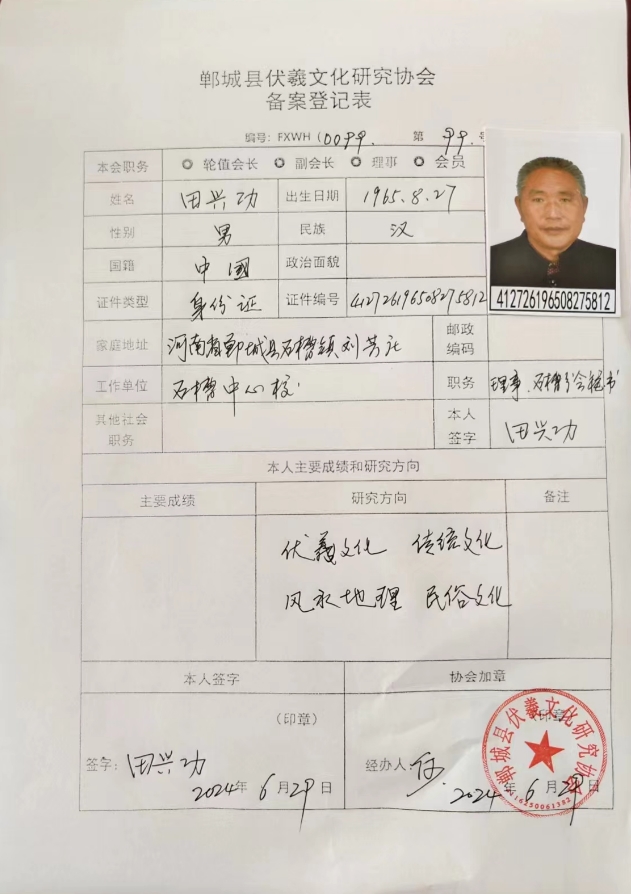 郸城县伏羲文化研究协会
备案登记表
编号：FXWH（0099. 第 99. 号
本会职务 轮值会长 副会长 理事 会员
姓名 田兴功 出生日期 1965.8.27
性别 男 民族 汉
国籍 中国 政治面貌
证件类型 身份证 证件编号 412726196508275812
412726196508275812
家庭地址 河南省郸城县石槽镇刘芳社 邮政编码
工作单位 石槽中心校. 职务 理事、石槽分会秘书
其他社会职务 本人签字 田兴功
本人主要成绩和研究方向
主要成绩 研究方向 备注
伏羲文化 传统文化
风水地理 民俗文化
本人签字 协会加章
（印章） 印章
签字：田兴功 经办人：
2024年 6月29日 2024年 6月29日
郸城县伏羲文化研究协会